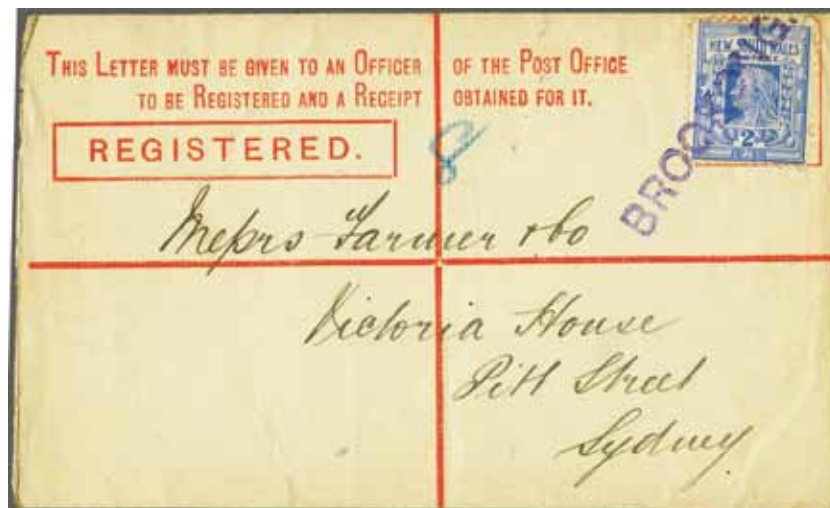 THIS LETTER MUST BE GIVEN TO AN OFFICER OF THE POST OFFICE
TO BE REGISTERED AND A RECEIPT OBTAINED FOR IT.
REGISTERED.
8
NEW SOUTH WALES
2
Messrs Farmer & Co
Victoria House
Pitt Street
Sydney